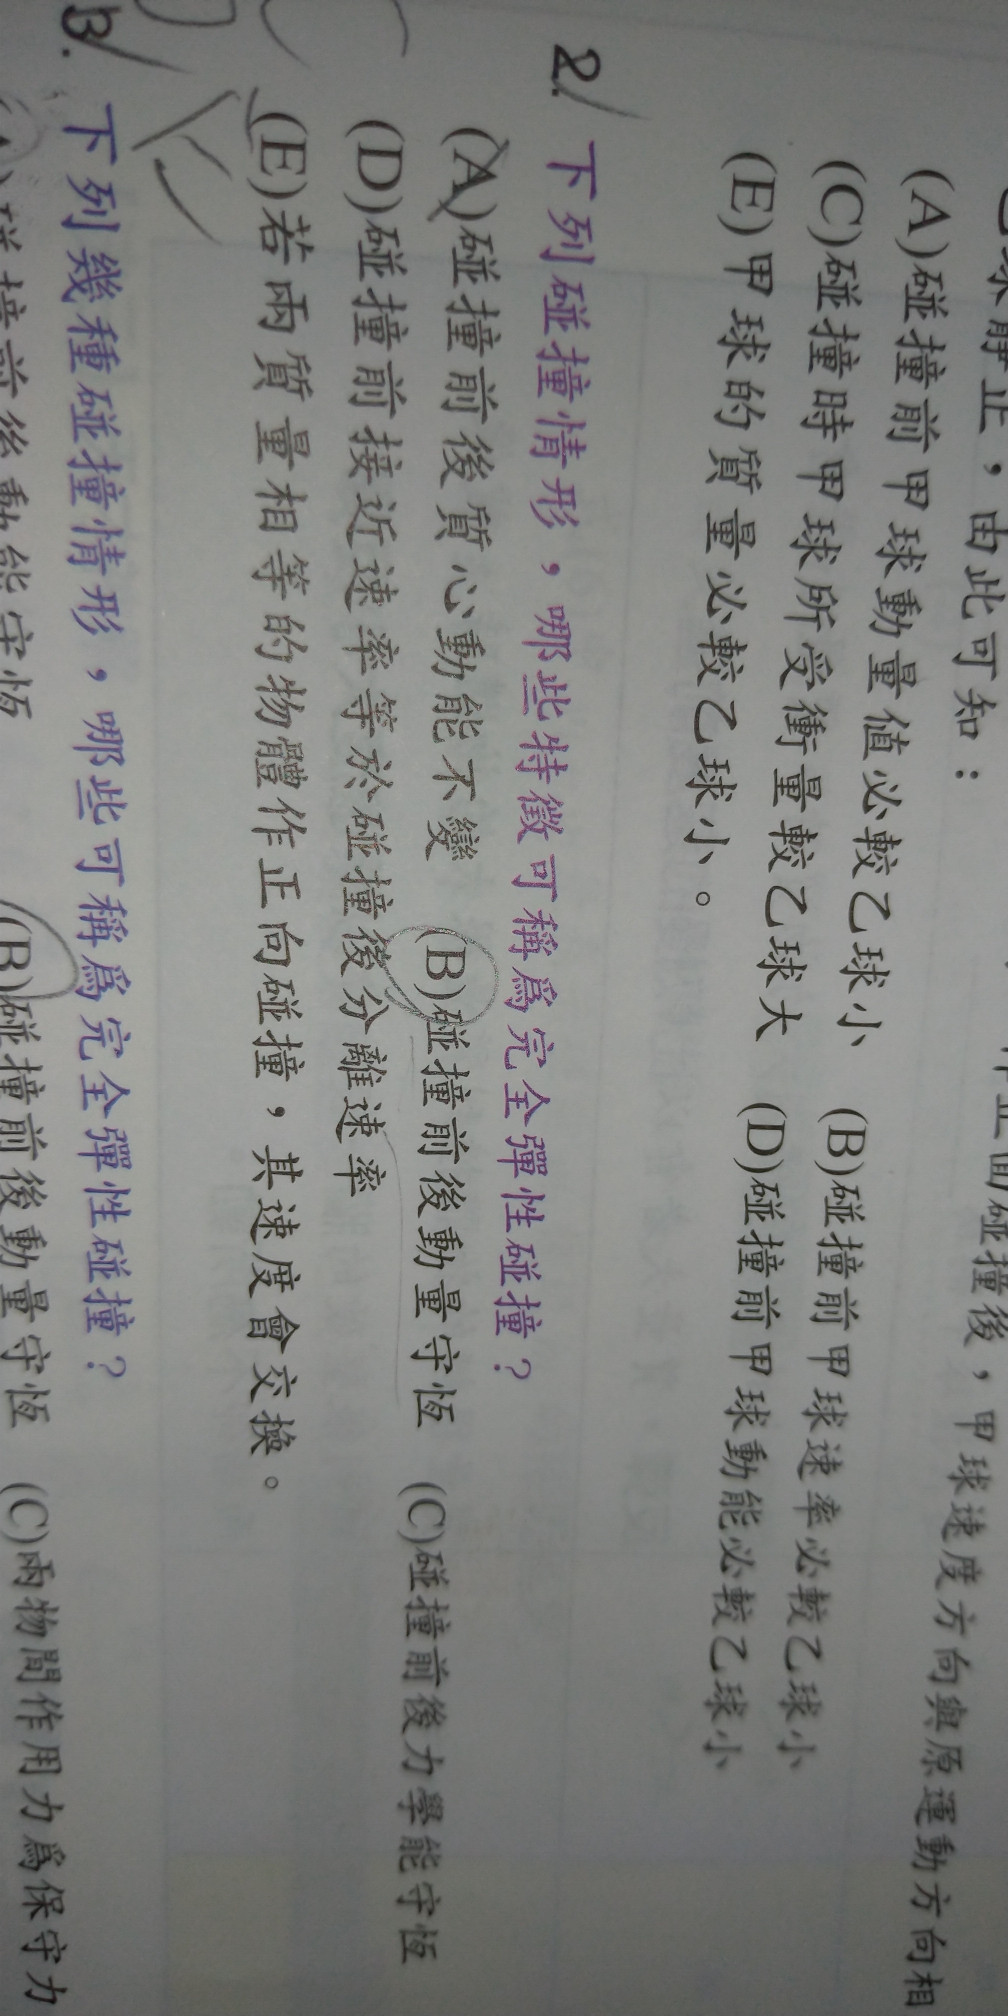 球靜止，由此可知：
面碰撞後，甲球速度方向與原運動方向相
(A)碰撞前甲球動量值必較乙球小 (B)碰撞前甲球速率必較乙球小
(C)碰撞時甲球所受衝量較乙球大 (D)碰撞前甲球動能必較乙球小
(E)甲球的質量必較乙球小。
2. 下列碰撞情形，哪些特徵可稱爲完全彈性碰撞？
(A)碰撞前後質心動能不變 (B)碰撞前後動量守恆 (C)碰撞前後力學能守恆
(D)碰撞前接近速率等於碰撞後分離速率
(E)若兩質量相等的物體作正向碰撞，其速度會交換。
3. 下列幾種碰撞情形，哪些可稱爲完全彈性碰撞？
(A)碰撞前後動能守恆 (B)碰撞前後動量守恆 (C)兩物間作用力爲保守力